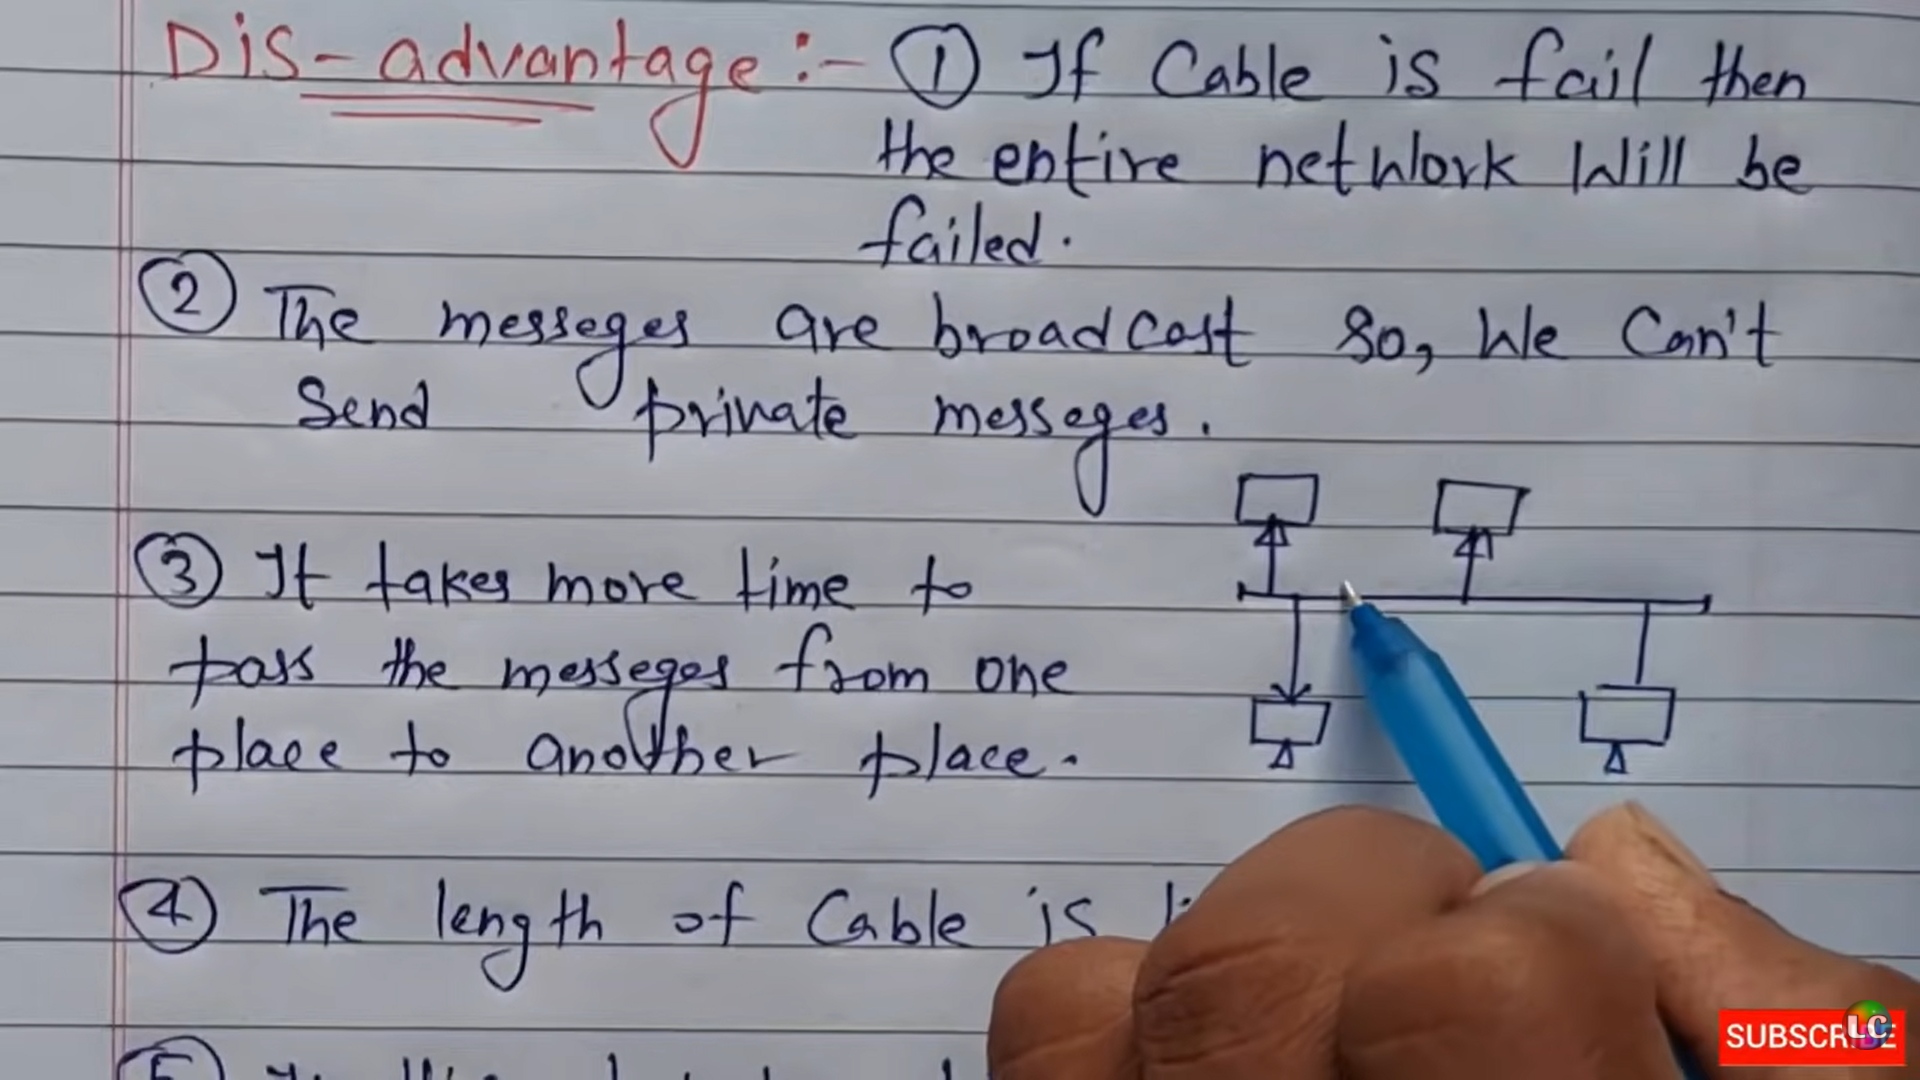 Dis-advantage:- ① If Cable is fail then
the entire network will be
failed.
② The messeges are broadcast so, we can't
send private messeges.
③ It takes more time to
pass the messeges from one
place to another place.
④ The length of Cable is
⑤
SUBSCRIBE
LC